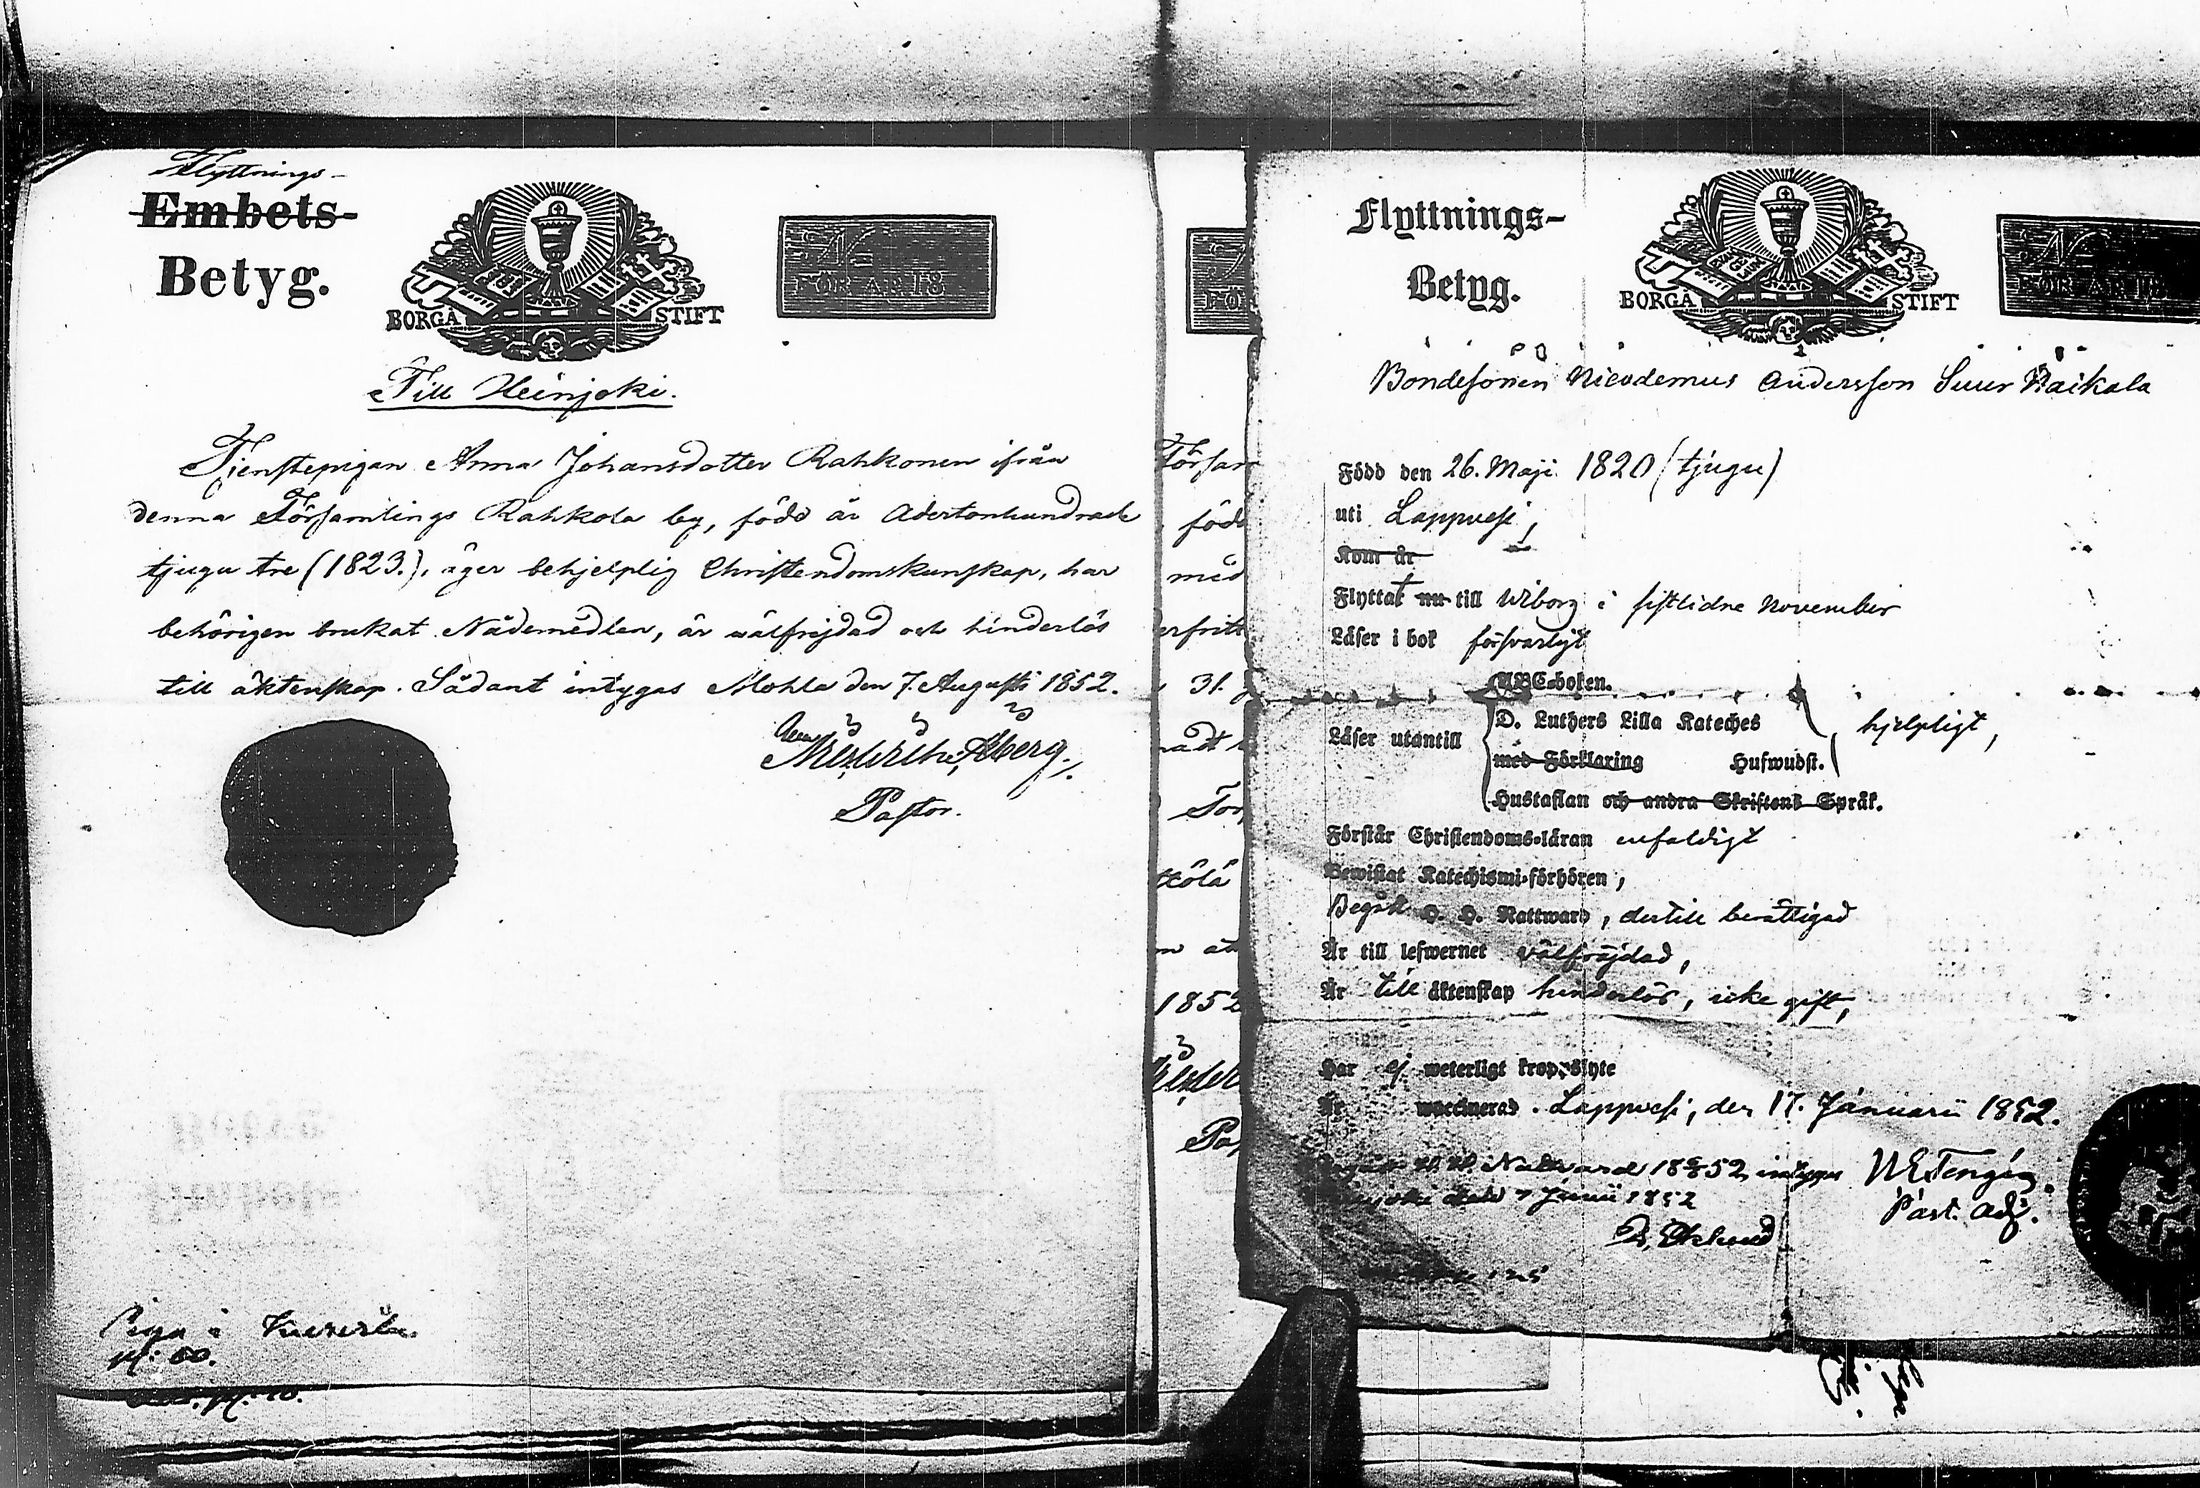 Flyttnings-
Embets-
Betyg.
BORGÅ STIFT
FÖR ÅR 18
Till Heinjoki.
Tjenstepigan Anna Johansdotter Rahkonen ifrån
denna Församlings Rahkola by, född år Adertonhundrade
tjugu tre (1823.), äger behjelplig Christendomskunskap, har
behörigen brukat Nådemedlen, är välfrejdad och hinderlös
till äktenskap. Sådant intygas Mohla den 7. Augusti 1852.
Åberg.
Pastor.
Piga i
född
med
31.
1852
Flyttnings-
Betyg.
BORGÅ STIFT
FÖR ÅR 18
Bondesonen Nicodemus Andersson Suur Raikala
Född den 26. Maji 1820 (tjugu)
uti Lappvesi,
Kom år
Flyttat nu till Wiborg i sistlidne November
Läser i bok försvarligt
ABC-boken.
D. Luthers Lilla Kateches
Läser utantill hjelpligt,
med Förklaring Hufwudst.
Hustaflan och andra Skriftens Språk.
Förstår Christendoms-läran enfaldigt
Bewistat Katechismi-förhören,
Begått H. H. Nattward, dertill berättigad
Är till lefwernet välfrejdad,
Är till äktenskap hinderlös, icke gift,
Har ej weterligt kroppslyte
Är waccinerad. Lappvesi, den 17. Januarii 1852.
H. H. Nattvard 18 52, intygas
den 7 Junii 1852
Past. Adj.